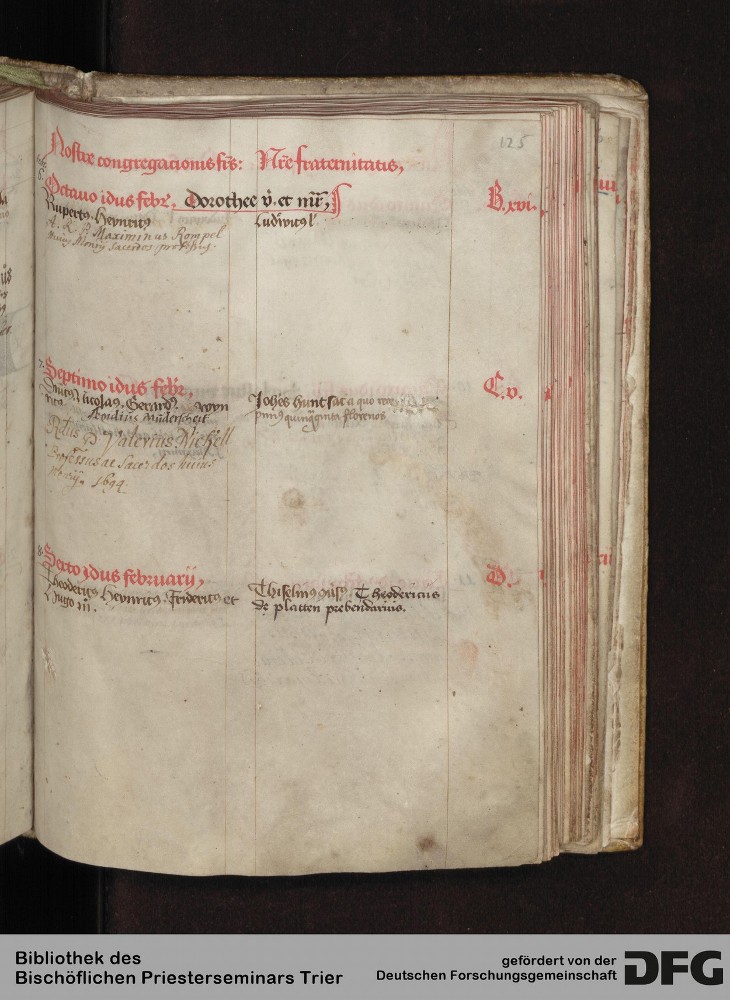 125
Nostre congregacionis frs: Nre fraternitatis,
Octavo idus febr, Dorothee v. et mr, B. xvi.
Ruperts. Heynrics Ludwics l'
A. R. P. Maximinus Rompel
huius Monrij Sacerdos professus.
7. Septimo idus febr, C. v.
Nicolas, Gerards. wyn Johes Huntsat a quo rece
rics pims quinquaginta florenos
Egidius Müderscheit
Rdus D Valerius Nickell
Professus ac Sacerdos huius
Mrij 1694
8. Sexto idus februarij, D.
Theoderics Heynrics. Friderics et Thiselms Theodericus
Hugo iii. de platten prebendarius.
Bibliothek des
Bischöflichen Priesterseminars Trier
gefördert von der
Deutschen Forschungsgemeinschaft
DFG